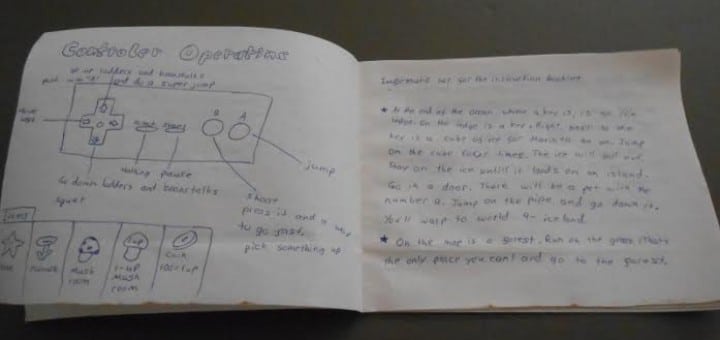 Controler Operations
Go up ladders and beanstalks
and do a super jump
select start
B A
walking pause
jump
Go down ladders and beanstalks
squat
shoot
press it and a way
to go fast.
pick something up
items
star
Mush
room
1-up
Mush
room
Coin
100=1up
for the instruction booklet
★ At the end of the ocean where a key is, is an ice
ledge. On the ledge is a key. Right next to the
key is a cube of ice for Mario to on. Jump
on the cube four times. The ice will fall out.
Stay on the ice untill it lands on an island.
Go in a door. There will be a pot with the
number 9. Jump on the pipe and go down it.
You'll warp to world 9- iceland.
★ On the map is a forest. Run on the grass (Thats
the only place you can) and go to the forest.